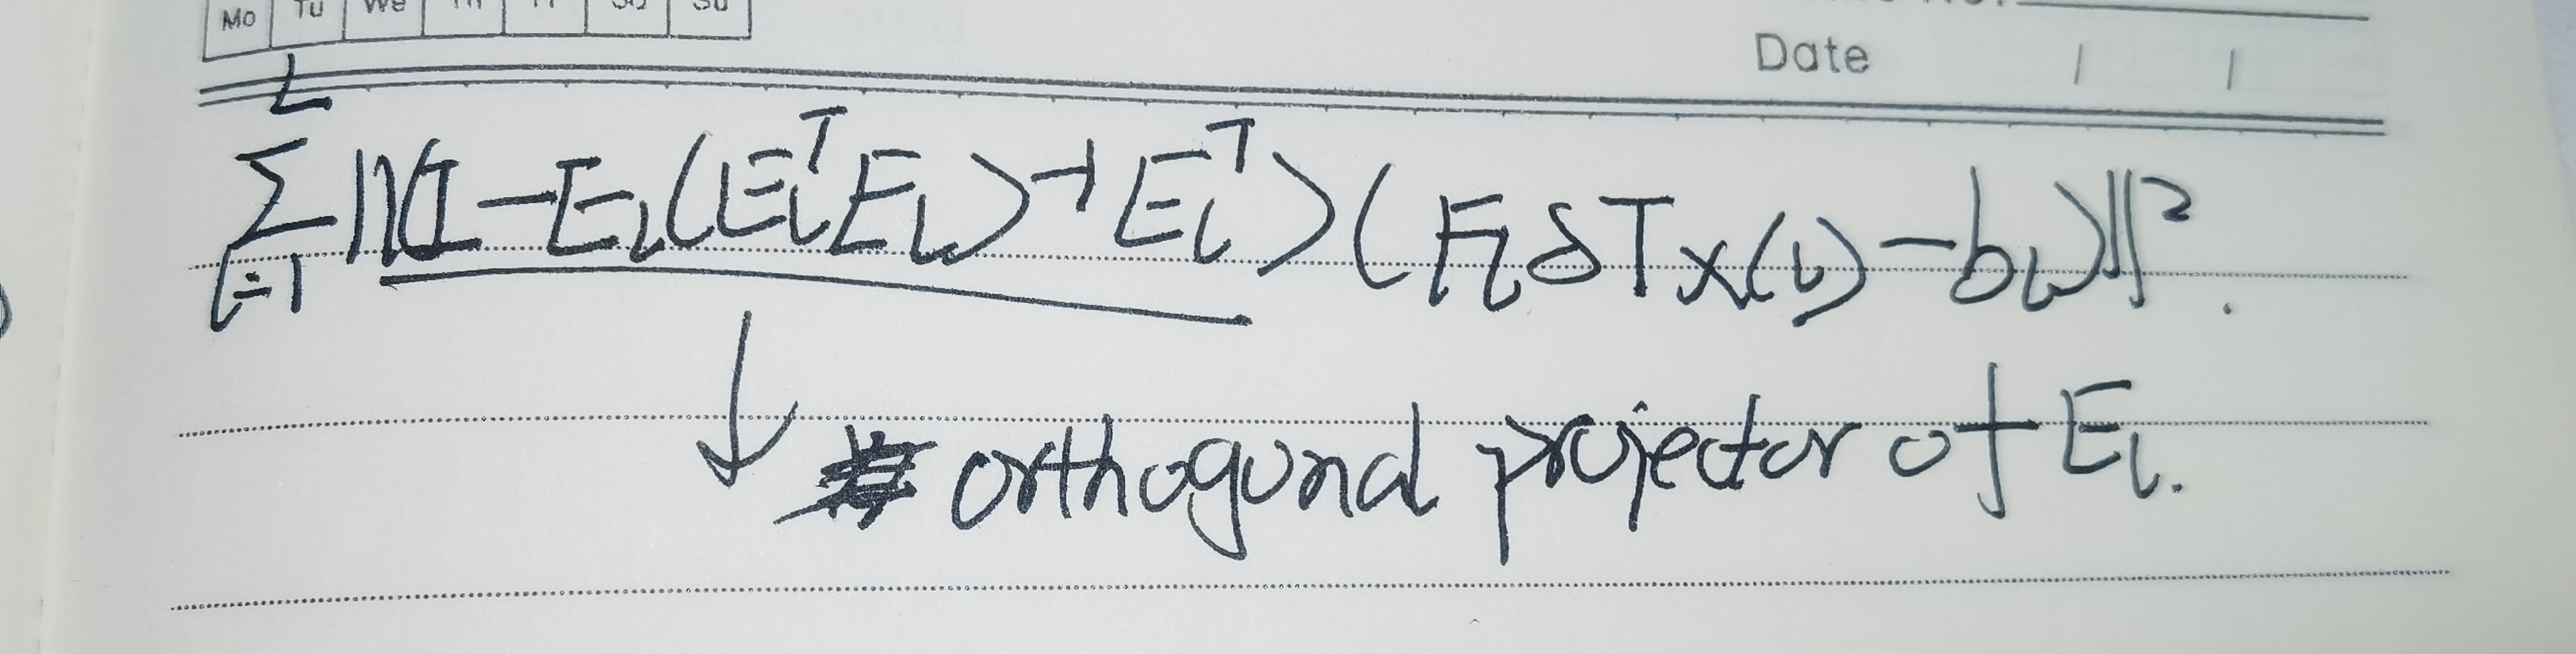 Mo Tu We Th Fr Sa Su
Date / /
L
∑ ‖(I − E_l(E_l^T E_l)^{-1} E_l^T)(F_l δT_{x(l)} − b_l)‖².
l=1
↓ orthogonal projector of E_l.